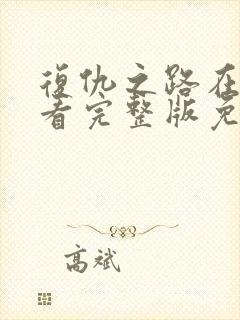 復仇之路在
看完整版免
高斌